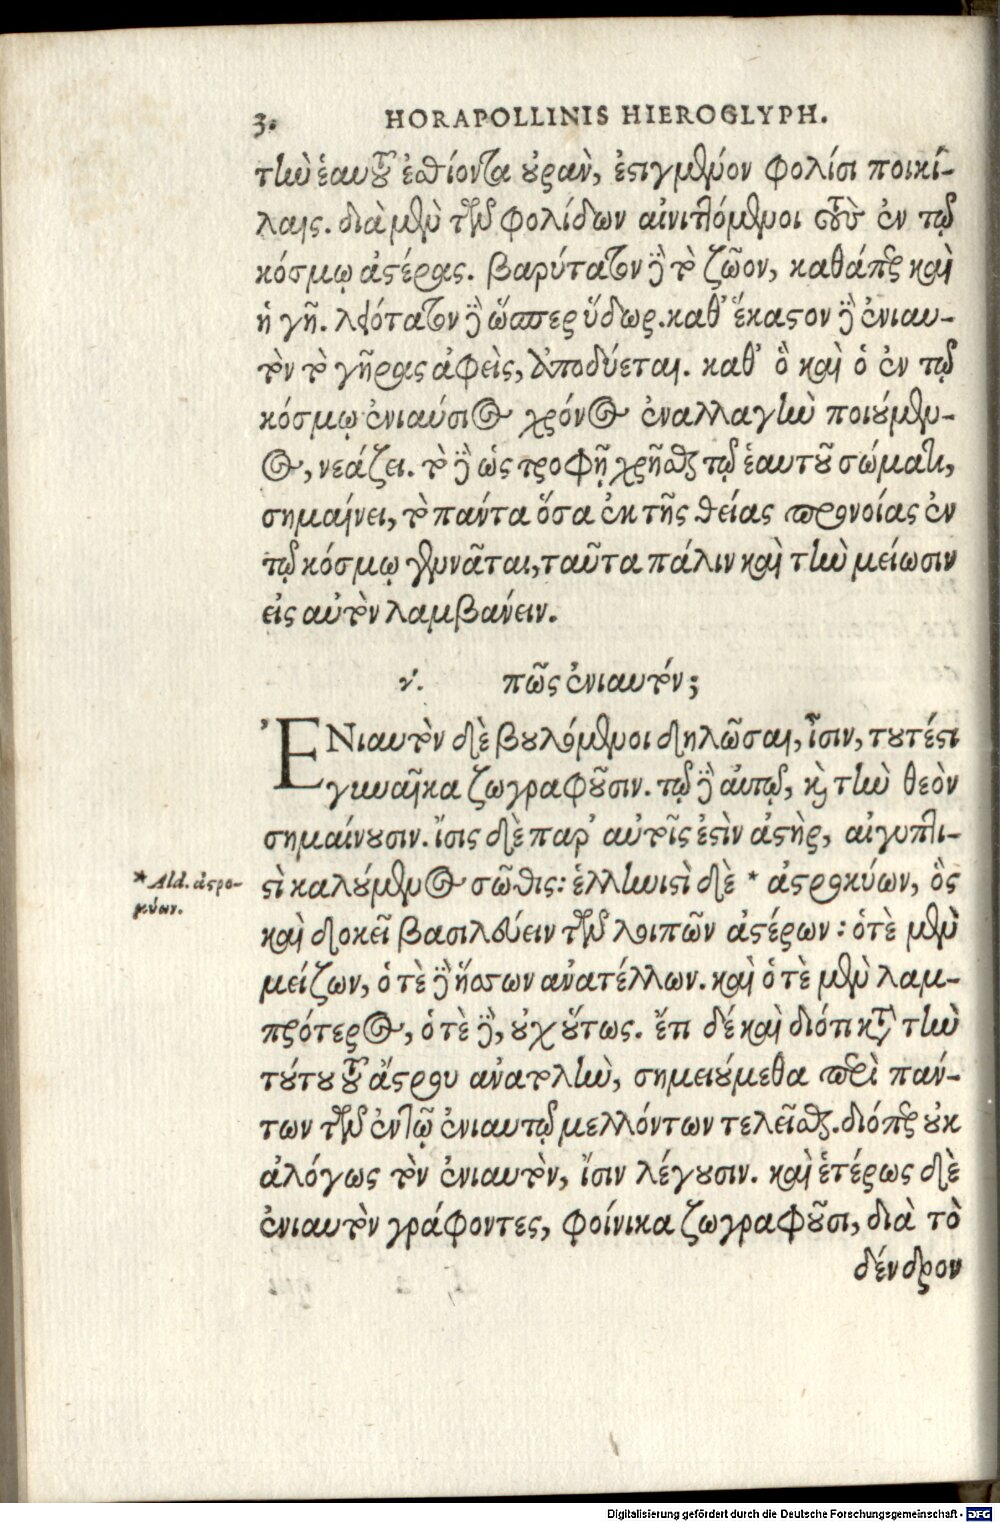 3. HORAPOLLINIS HIEROGLYPH.
τὴν ἑαυτοῦ ἐσθίοντα οὐρὰν, ἐστιγμένον φολίσι ποικί-
λαις. διὰ μὲν τῶν φολίδων αἰνιττόμενοι τοὺς ἐν τῷ
κόσμῳ ἀστέρας. βαρύτατον δὲ τὸ ζῶον, καθάπερ καὶ
ἡ γῆ. λειότατον δὲ ὥσπερ ὕδωρ. καθ' ἕκαστον δὲ ἐνιαυ-
τὸν τὸ γῆρας ἀφεὶς, ἀποδύεται. καθ' ὃ καὶ ὁ ἐν τῷ
κόσμῳ ἐνιαύσιος χρόνος ἐναλλαγὴν ποιούμεν-
ος, νεάζει. τὸ δὲ ὡς τροφῇ χρῆσθαι τῷ ἑαυτοῦ σώματι,
σημαίνει, τὸ πάντα ὅσα ἐκ τῆς θείας προνοίας ἐν
τῷ κόσμῳ γεννᾶται, ταῦτα πάλιν καὶ τὴν μείωσιν
εἰς αὐτὸν λαμβάνειν.
γ'. πῶς ἐνιαυτόν;
ἘΝιαυτὸν δὲ βουλόμενοι δηλῶσαι, ἶσιν, τουτέστι
γυναῖκα ζωγραφοῦσιν. τῷ δὲ αὐτῷ, καὶ τὴν θεὸν
σημαίνουσιν. ἴσις δὲ παρ' αὐτοῖς ἐστὶν ἀστὴρ, αἰγυπτι-
στὶ καλούμενος σῶθις: ἑλληνιστὶ δὲ * ἀστροκύων, ὃς
* Ald. ἀστρο-
κύων.
καὶ δοκεῖ βασιλεύειν τῶν λοιπῶν ἀστέρων: ὁτὲ μὲν
μείζων, ὁτὲ δὲ ἥσσων ἀνατέλλων. καὶ ὁτὲ μὲν λαμ-
πρότερος, ὁτὲ δὲ, οὐχ οὕτως. ἔτι δὲ καὶ διότι κατὰ τὴν
τούτου τοῦ ἄστρου ἀνατολὴν, σημειούμεθα περὶ πάν-
των τῶν ἐν τῷ ἐνιαυτῷ μελλόντων τελεῖσθαι. διόπερ οὐκ
ἀλόγως τὸν ἐνιαυτὸν, ἴσιν λέγουσιν. καὶ ἑτέρως δὲ
ἐνιαυτὸν γράφοντες, φοίνικα ζωγραφοῦσι, διὰ τὸ
δένδρον
Digitalisierung gefördert durch die Deutsche Forschungsgemeinschaft - DFG